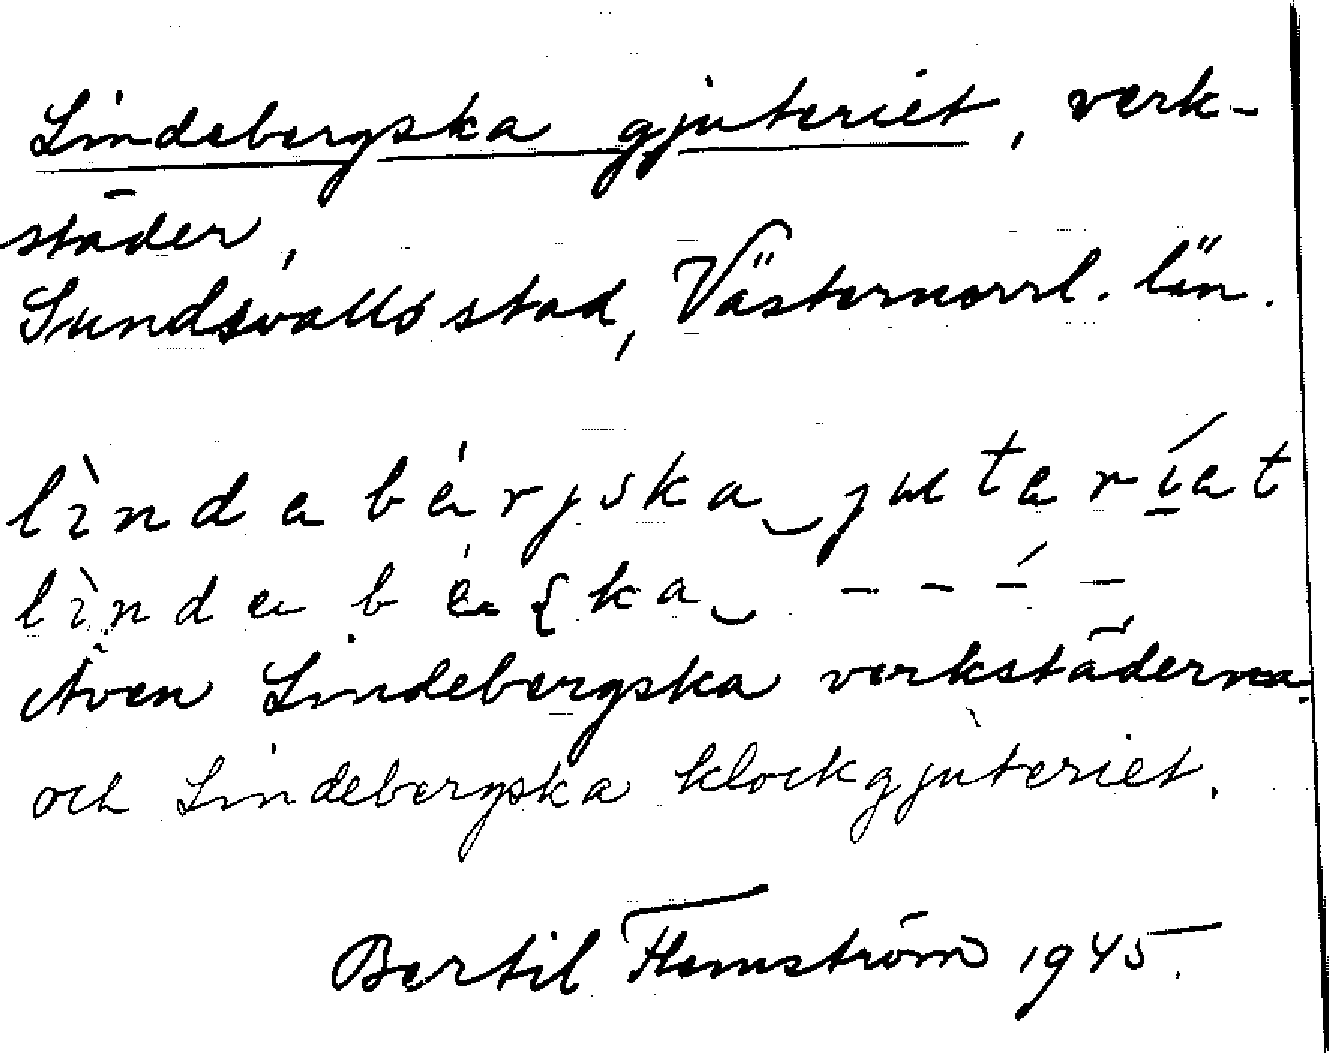 Lindebergska gjuteriet, verk-
städer,
Sundsvalls stad, Västernorrl. län.
lìndabérjska‿jutaríat
lìndabé ka‿ - - - -
Även Lindebergska verkstäderna.
och Lindebergska klockgjuteriet.
Bertil Flemström 1945.